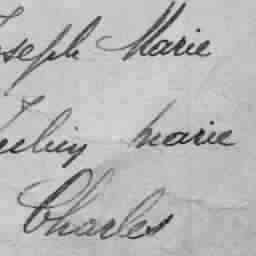 Joseph Marie
marie
Charles